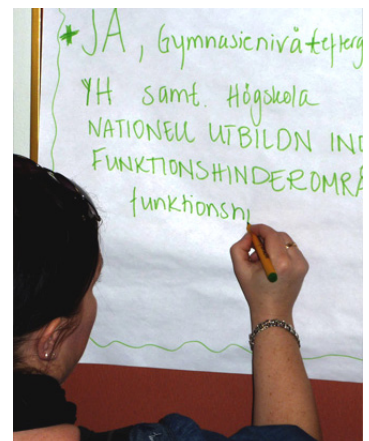 * JA, Gymnasienivå + efterg
YH samt. Högskola
NATIONELL UTBILDN IN
FUNKTIONSHINDEROMRÅ
funktionshi